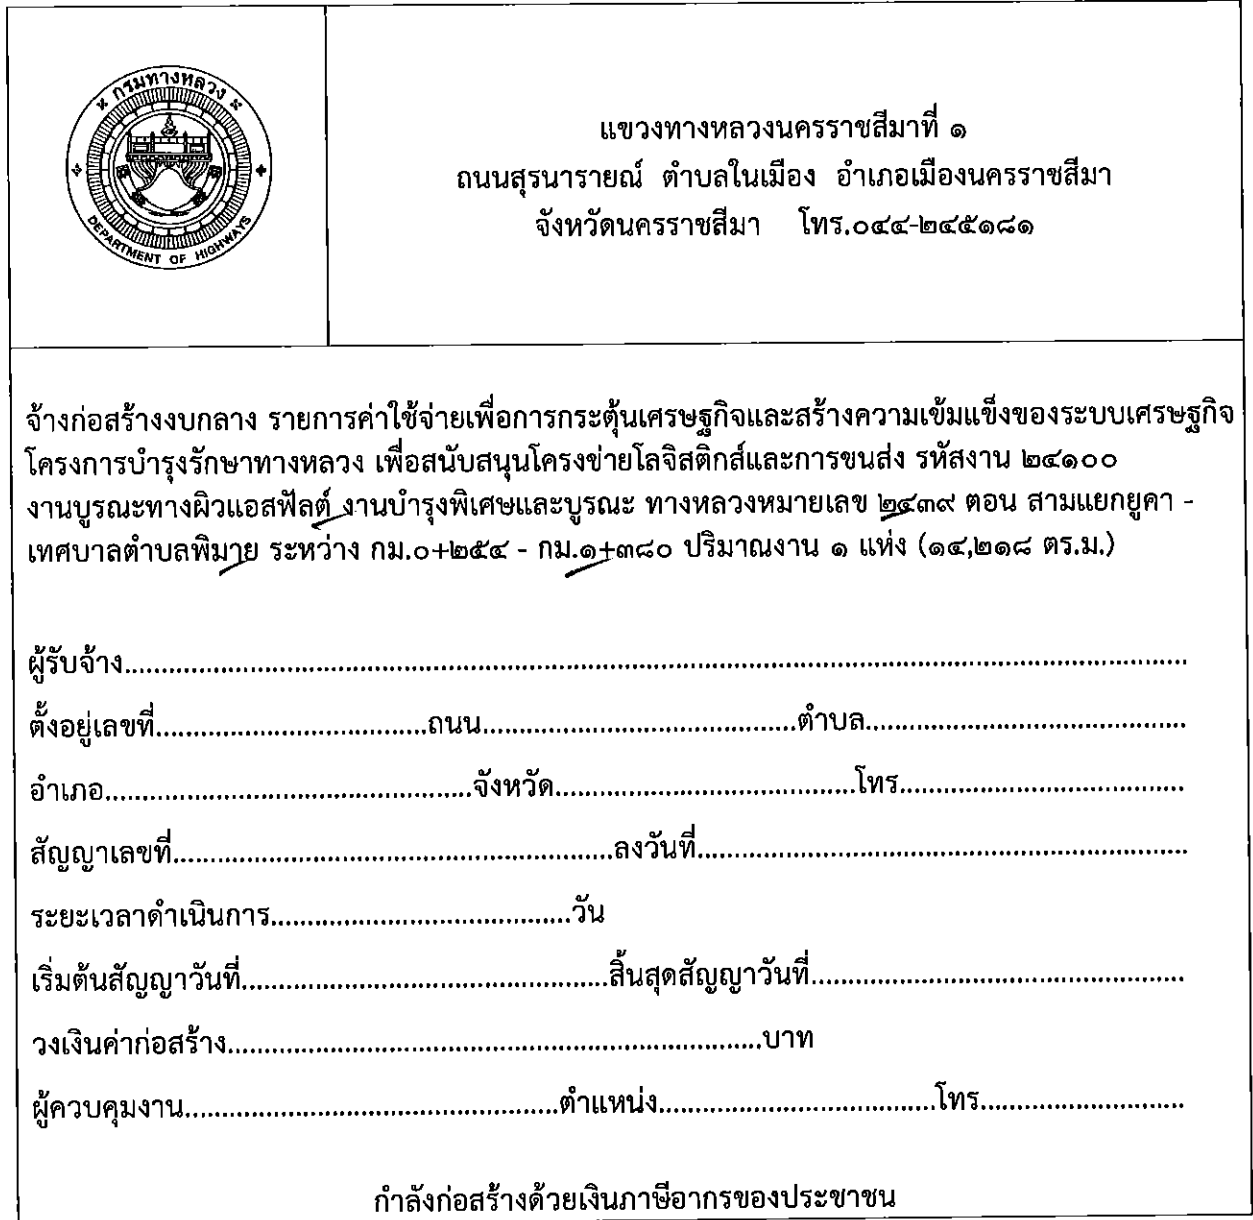 กรมทางหลวง
DEPARTMENT OF HIGHWAYS
แขวงทางหลวงนครราชสีมาที่ ๑
ถนนสุรนารายณ์ ตำบลในเมือง อำเภอเมืองนครราชสีมา
จังหวัดนครราชสีมา โทร.๐๔๔-๒๔๕๑๘๑
จ้างก่อสร้างงบกลาง รายการค่าใช้จ่ายเพื่อการกระตุ้นเศรษฐกิจและสร้างความเข้มแข็งของระบบเศรษฐกิจ
โครงการบำรุงรักษาทางหลวง เพื่อสนับสนุนโครงข่ายโลจิสติกส์และการขนส่ง รหัสงาน ๒๔๑๐๐
งานบูรณะทางผิวแอสฟัลต์ งานบำรุงพิเศษและบูรณะ ทางหลวงหมายเลข ๒๔๓๙ ตอน สามแยกยูคา -
เทศบาลตำบลพิมาย ระหว่าง กม.๐+๒๕๔ - กม.๑+๓๘๐ ปริมาณงาน ๑ แห่ง (๑๔,๒๑๘ ตร.ม.)
ผู้รับจ้าง....................................................................................................
ตั้งอยู่เลขที่....................................ถนน..........................................ตำบล...........................................
อำเภอ.................................................จังหวัด........................................โทร......................................
สัญญาเลขที่...........................................................ลงวันที่..................................................................
ระยะเวลาดำเนินการ........................................วัน
เริ่มต้นสัญญาวันที่.................................................สิ้นสุดสัญญาวันที่..................................................
วงเงินค่าก่อสร้าง.......................................................................บาท
ผู้ควบคุมงาน..................................................ตำแหน่ง.....................................โทร...........................
กำลังก่อสร้างด้วยเงินภาษีอากรของประชาชน